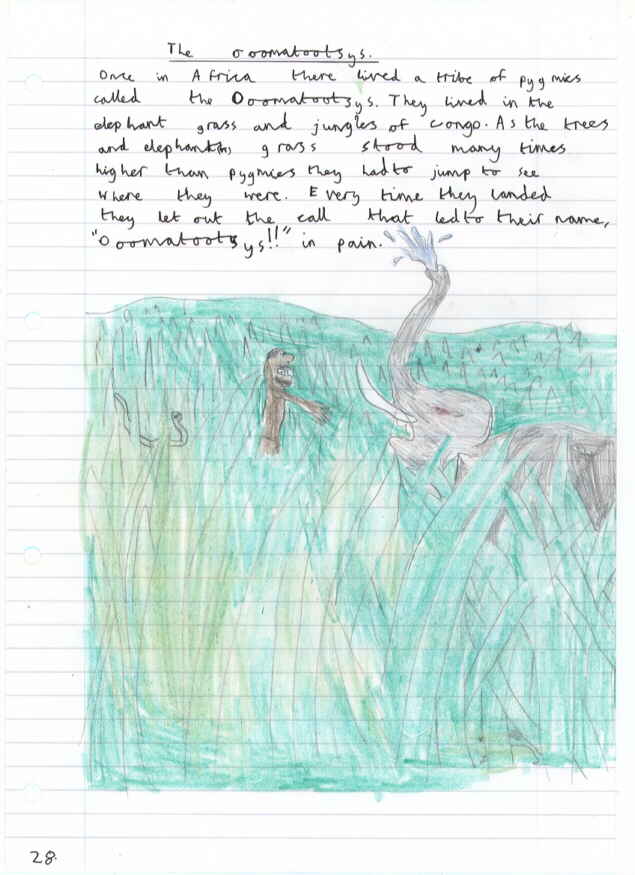 The Ooomatootsys.
Once in Africa there lived a tribe of pygmies
called the Ooomatootsys. They lived in the
elephant grass and jungles of Congo. As the trees
and elephant grass stood many times
higher than pygmies they had to jump to see
where they were. Every time they landed
they let out the call that led to their name,
"Ooomatootsys!!" in pain.
28.